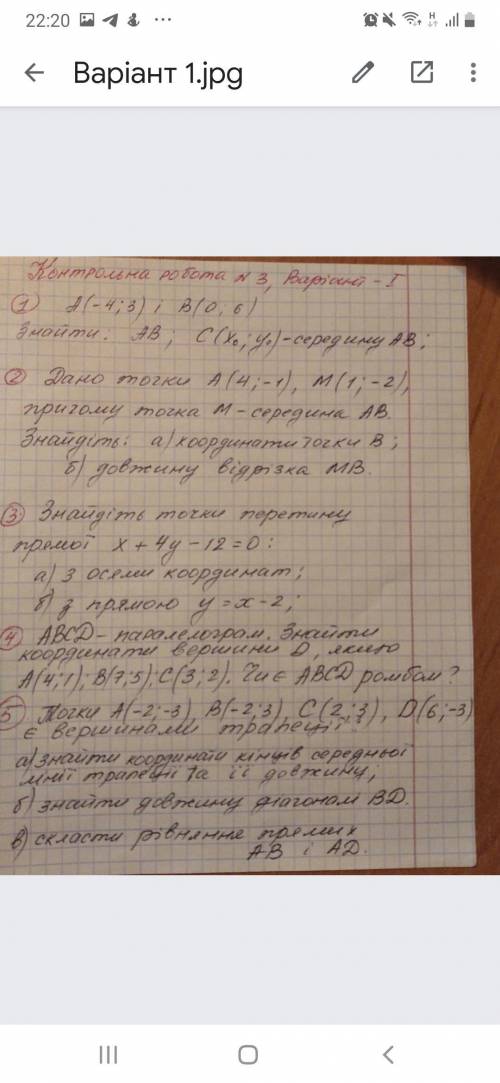 22:20
Варіант 1.jpg
Контрольна робота № 3, Варіант - I
1 A(-4; 3) і B(0; 6)
Знайти: AB; C(x₀; y₀) - середину AB;
2 Дано точки A(4; -1), M(1; -2),
причому точка M - середина AB.
Знайдіть: а) координати точки B;
б) довжину відрізка MB.
3 Знайдіть точки перетину
прямої x + 4y - 12 = 0:
а) з осями координат;
б) з прямою y = x - 2;
4 ABCD - паралелограм. Знайти
координати вершини D, якщо
A(4; 1); B(7; 5); C(3; 2). Чи є ABCD ромбом?
5 Точки A(-2; -3), B(-2; 3), C(2; 3), D(6; -3)
є вершинами трапеції.
а) знайти координати кінців середньої
лінії трапеції та її довжину;
б) знайти довжину діагоналі BD.
в) скласти рівняння прямих
AB і AD.